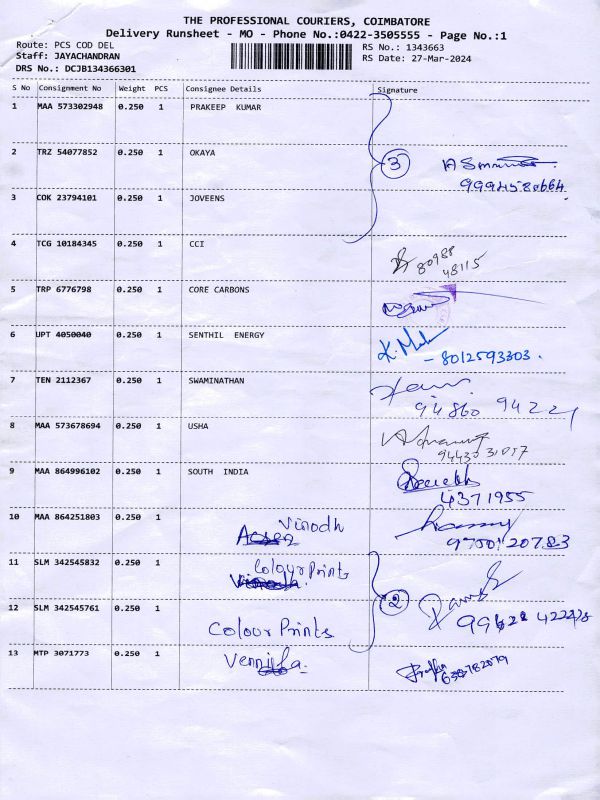 THE PROFESSIONAL COURIERS, COIMBATORE
Delivery Runsheet - MO - Phone No.:0422-3505555 - Page No.:1
Route: PCS COD DEL
RS No.: 1343663
Staff: JAYACHANDRAN
RS Date: 27-Mar-2024
DRS No.: DCJB134366301
S No Consignment No Weight PCS Consignee Details Signature
1 MAA 573302948 0.250 1 PRAKEEP KUMAR
2 TRZ 54077852 0.250 1 OKAYA
3
9994580664
3 COK 23794101 0.250 1 JOVEENS
4 TCG 10184345 0.250 1 CCI
80988
48115
5 TRP 6776798 0.250 1 CORE CARBONS
6 UPT 4050040 0.250 1 SENTHIL ENERGY
- 8012593303.
7 TEN 2112367 0.250 1 SWAMINATHAN
94860 94221
8 MAA 573678694 0.250 1 USHA
94430 31057
9 MAA 864996102 0.250 1 SOUTH INDIA
4371955
10 MAA 864251803 0.250 1 Vinodh
9750120783
11 SLM 342545832 0.250 1 Colour Prints
2
12 SLM 342545761 0.250 1 Colour Prints
13 MTP 3071773 0.250 1